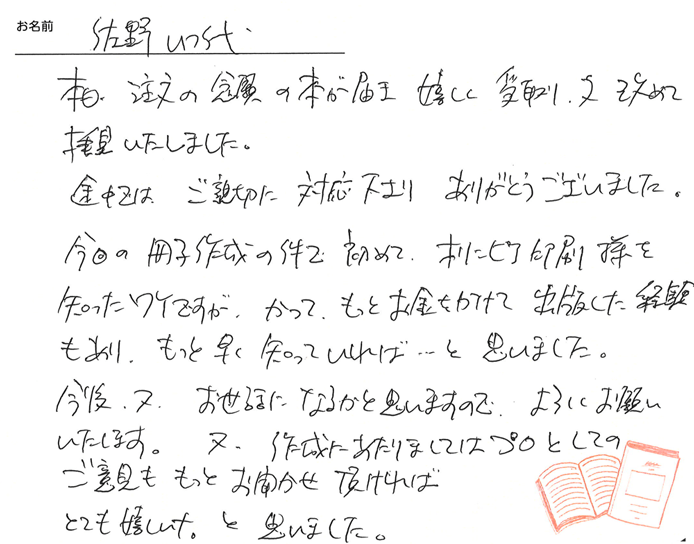 お名前 佐野 いつ代
本日、注文の念願の本が届き 嬉しく 受取り、又 改めて
拝見いたしました。
途中では ご親切に 対応下さり ありがとうございました。
今回の冊子作成の件で 初めて、オリンピア印刷 様を
知ったワケですが、かつて、もっとお金をかけて 出版した 経験
もあり、もっと 早く 知っていれば…と 思いました。
今後、又、お世話に なるかと思いますので、よろしくお願い
いたします。 又、作成にあたりましてはプロとしての
ご意見も もっと お聞かせ 頂ければ
とても嬉しい。と 思いました。